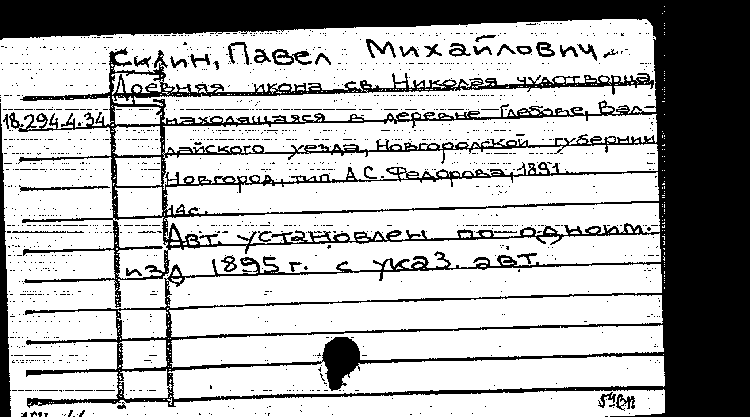 Силин, Павел Михайлович.
Древняя икона св. Николая чудотворца,
18.294.4.34 находящаяся в деревне Глебове, Вал-
дайского уезда, Новгородской губернии
Новгород, тип. А.С. Федорова, 1891.
14с.
Авт. установлен по одноим.
изд 1895 г. с указ. авт.